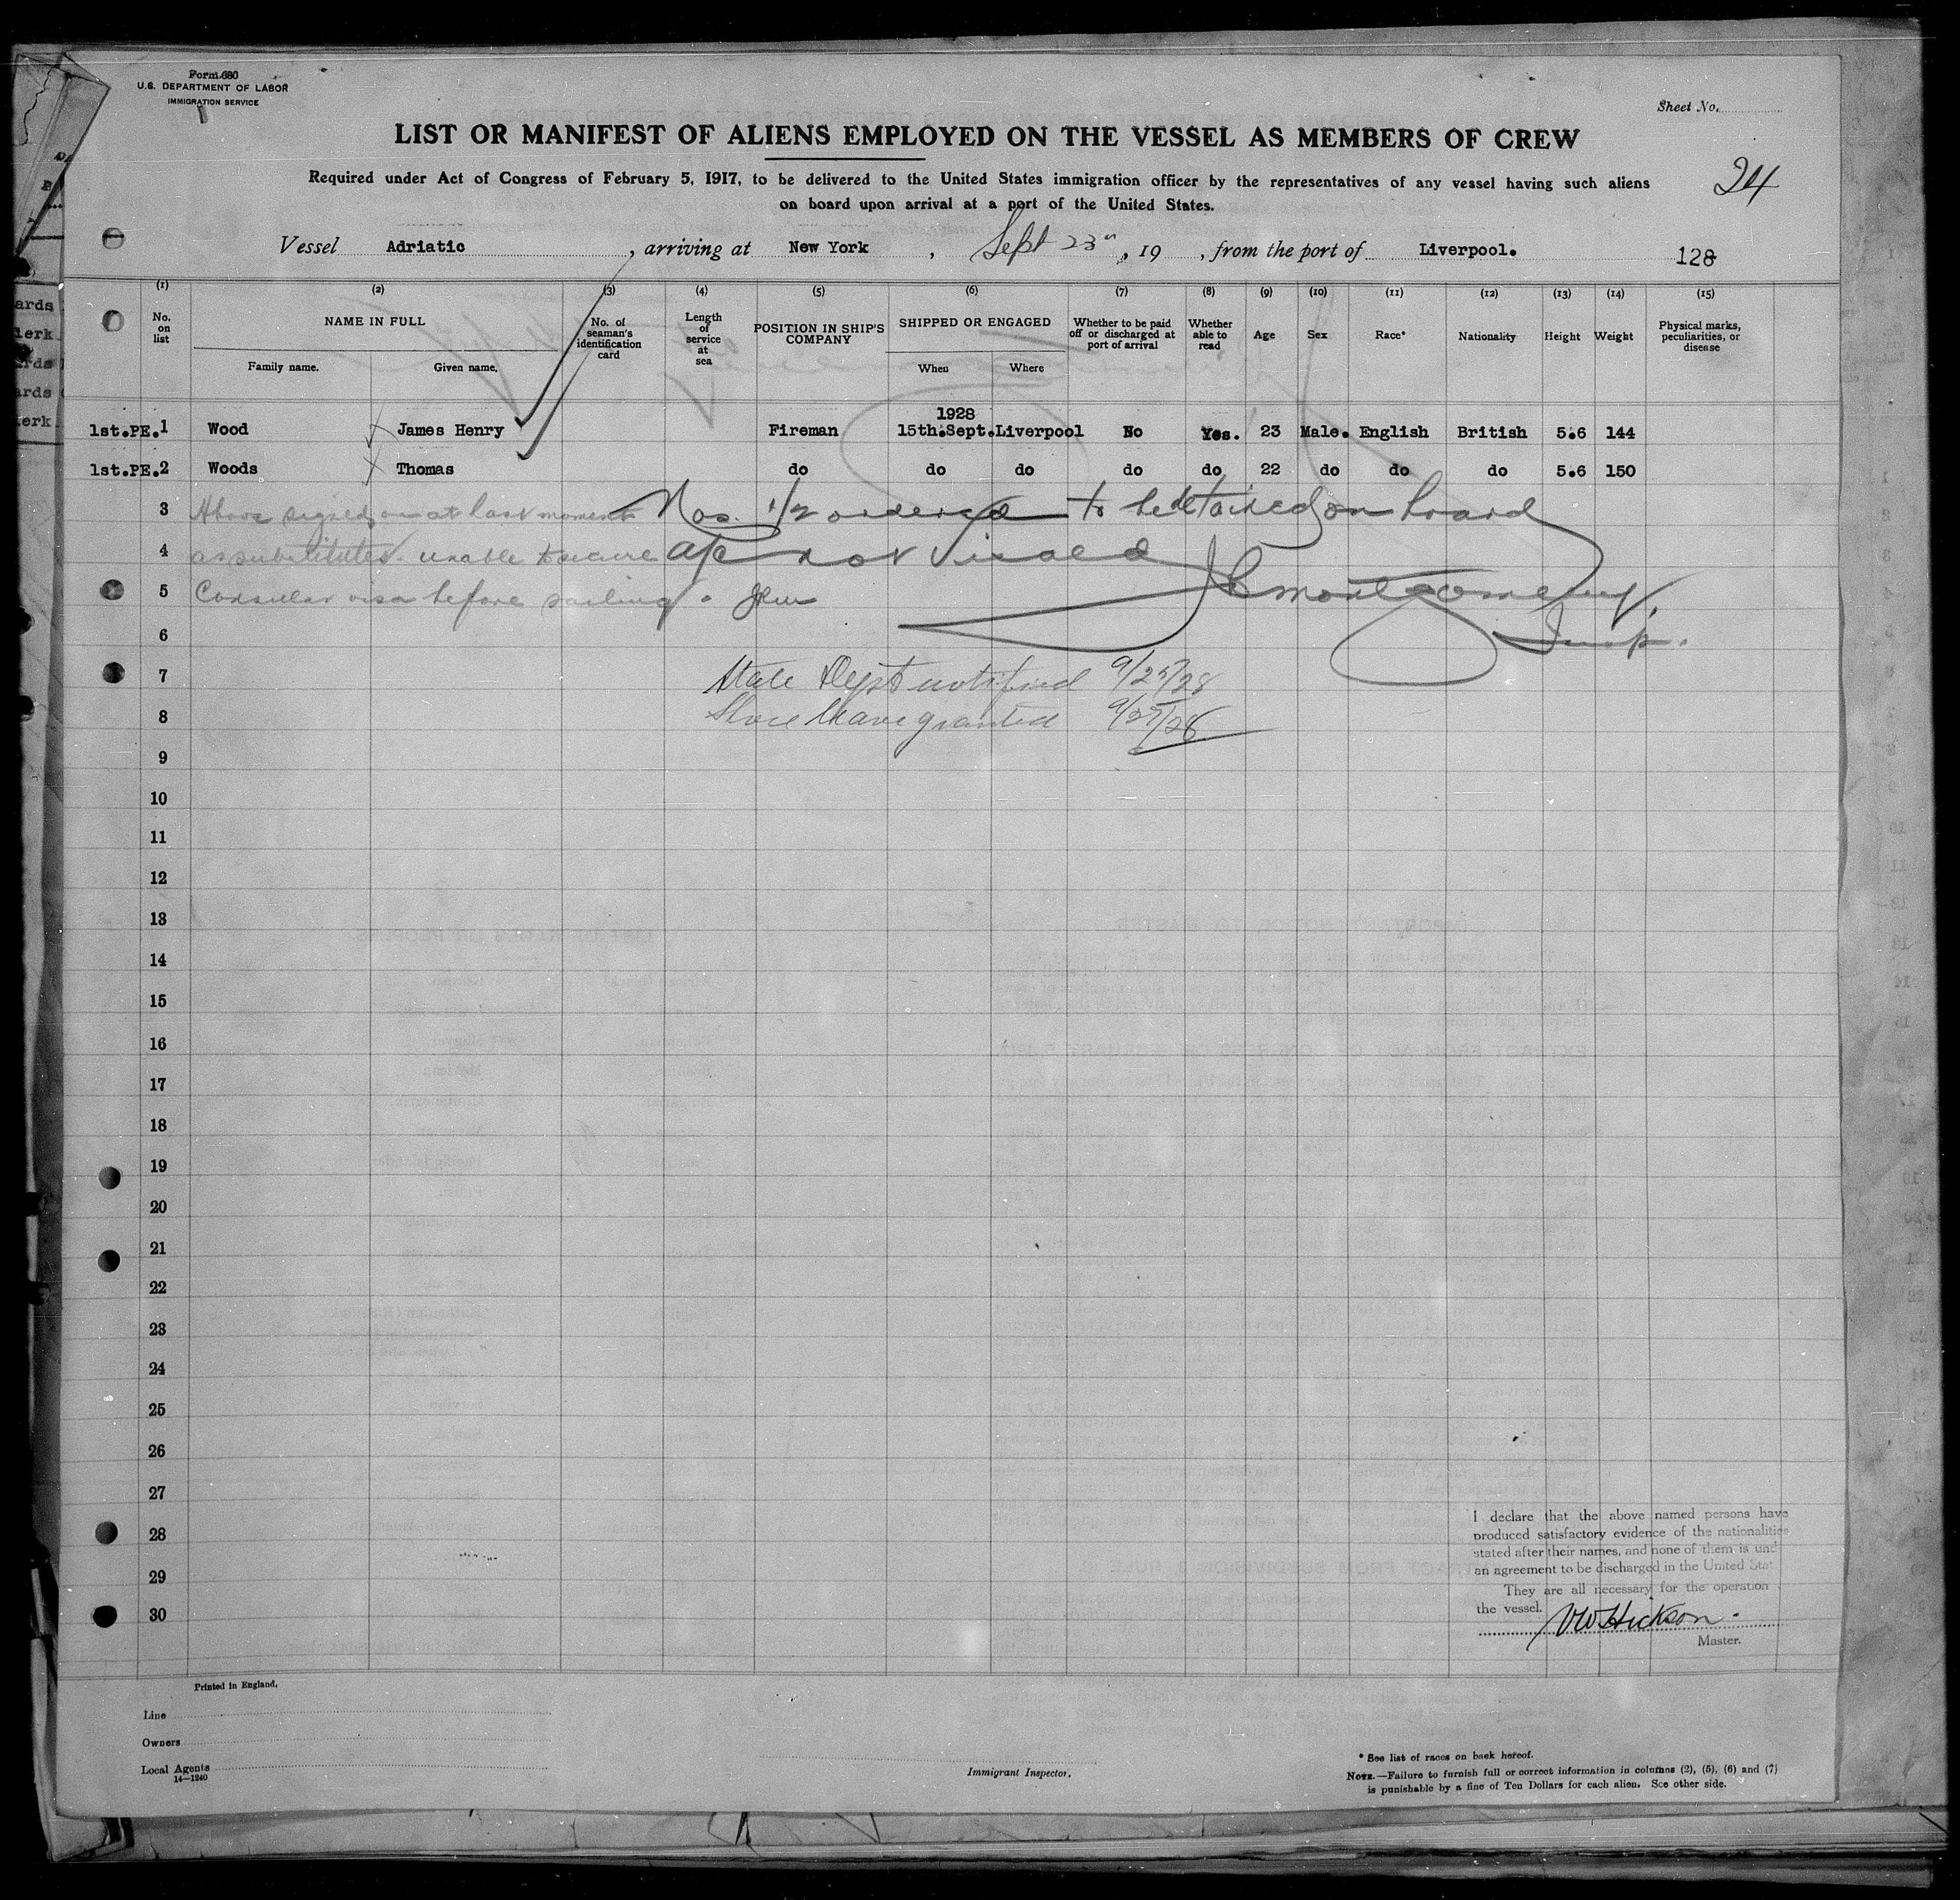 Form 680
U.S. DEPARTMENT OF LABOR
IMMIGRATION SERVICE
Sheet No.
LIST OR MANIFEST OF ALIENS EMPLOYED ON THE VESSEL AS MEMBERS OF CREW
Required under Act of Congress of February 5, 1917, to be delivered to the United States immigration officer by the representatives of any vessel having such aliens
on board upon arrival at a port of the United States.
24
Vessel Adriatic, arriving at New York, Sept 23rd, 19 , from the port of Liverpool.
128
(1) (2) (3) (4) (5) (6) (7) (8) (9) (10) (11) (12) (13) (14) (15)
No. on list
NAME IN FULL
Family name. Given name.
No. of seaman's identification card
Length of service at sea
POSITION IN SHIP'S COMPANY
SHIPPED OR ENGAGED
When Where
Whether to be paid off or discharged at port of arrival
Whether able to read
Age
Sex
Race*
Nationality
Height
Weight
Physical marks, peculiarities, or disease
1928
1st.PE. 1 Wood James Henry Fireman 15th.Sept. Liverpool No Yes. 23 Male. English British 5.6 144
1st.PE. 2 Woods Thomas do do do do do 22 do do do 5.6 150
3 Above signed on at last moment Nos. 1/2 ordered to be detained on board
4 as substitutes. unable to secure a/c not visaed
5 Consular visa before sailing. Montgomery,
6 Insp.
7 State Dept notified 9/25/28
8 Shore leave granted 9/25/28
9
10
11
12
13
14
15
16
17
18
19
20
21
22
23
24
25
26
27
28
29
30
I declare that the above named persons have
produced satisfactory evidence of the nationalities
stated after their names, and none of them is und
an agreement to be discharged in the United Stat
They are all necessary for the operation
the vessel.
Hickson.
Master.
Printed in England.
Line
Owners
Local Agents
14—1240
Immigrant Inspector.
* See list of races on back hereof.
NOTE.—Failure to furnish full or correct information in columns (2), (5), (6) and (7)
is punishable by a fine of Ten Dollars for each alien. See other side.